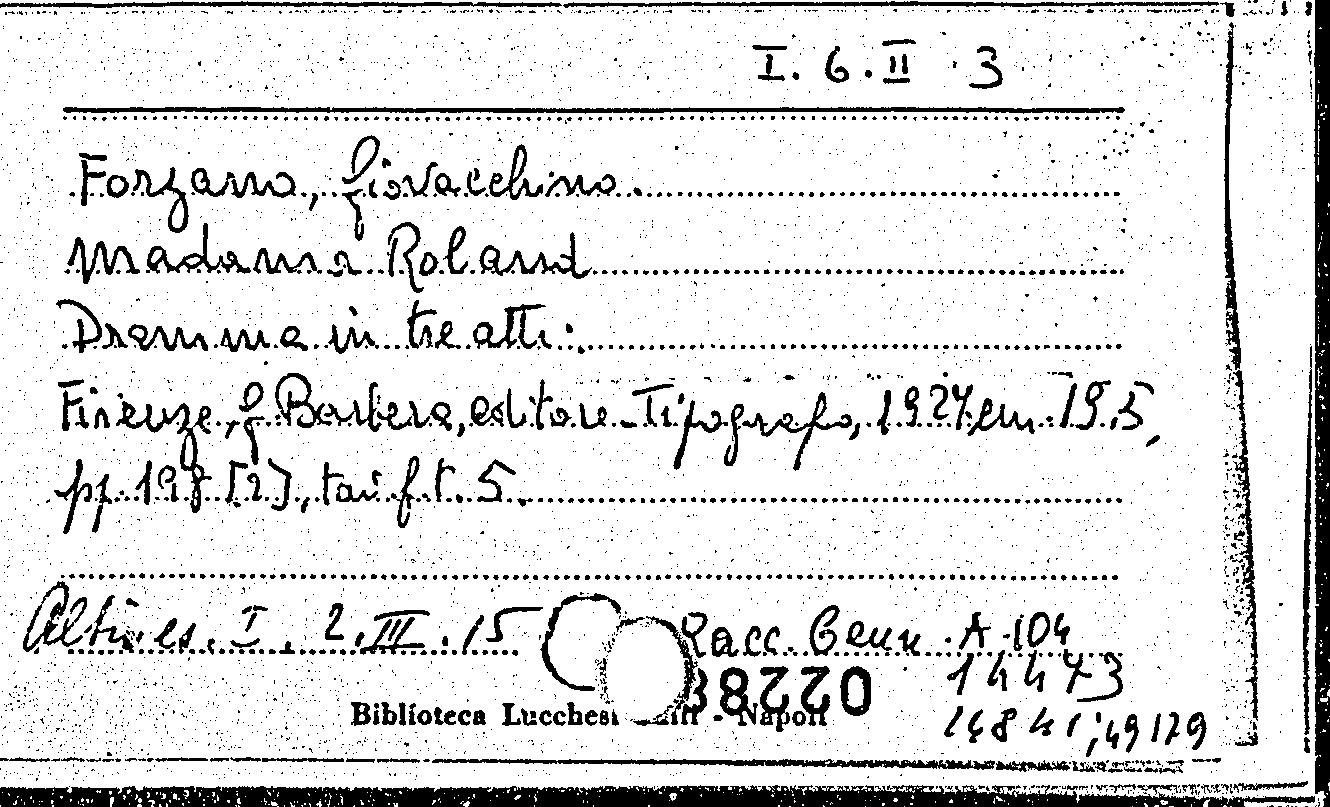 I. 6. II 3
Forzano, Giovacchino.
Madama Roland
Dramma in tre atti.
Firenze, G Barbera, editore-Tipografo, 1924, cm. 19.5,
pp. 198 [2], tav f. t. 5.
Altri es. I. 2. III. 15 Racc. Genn. A 104
38220 14473
Biblioteca Lucchesi - Napoli